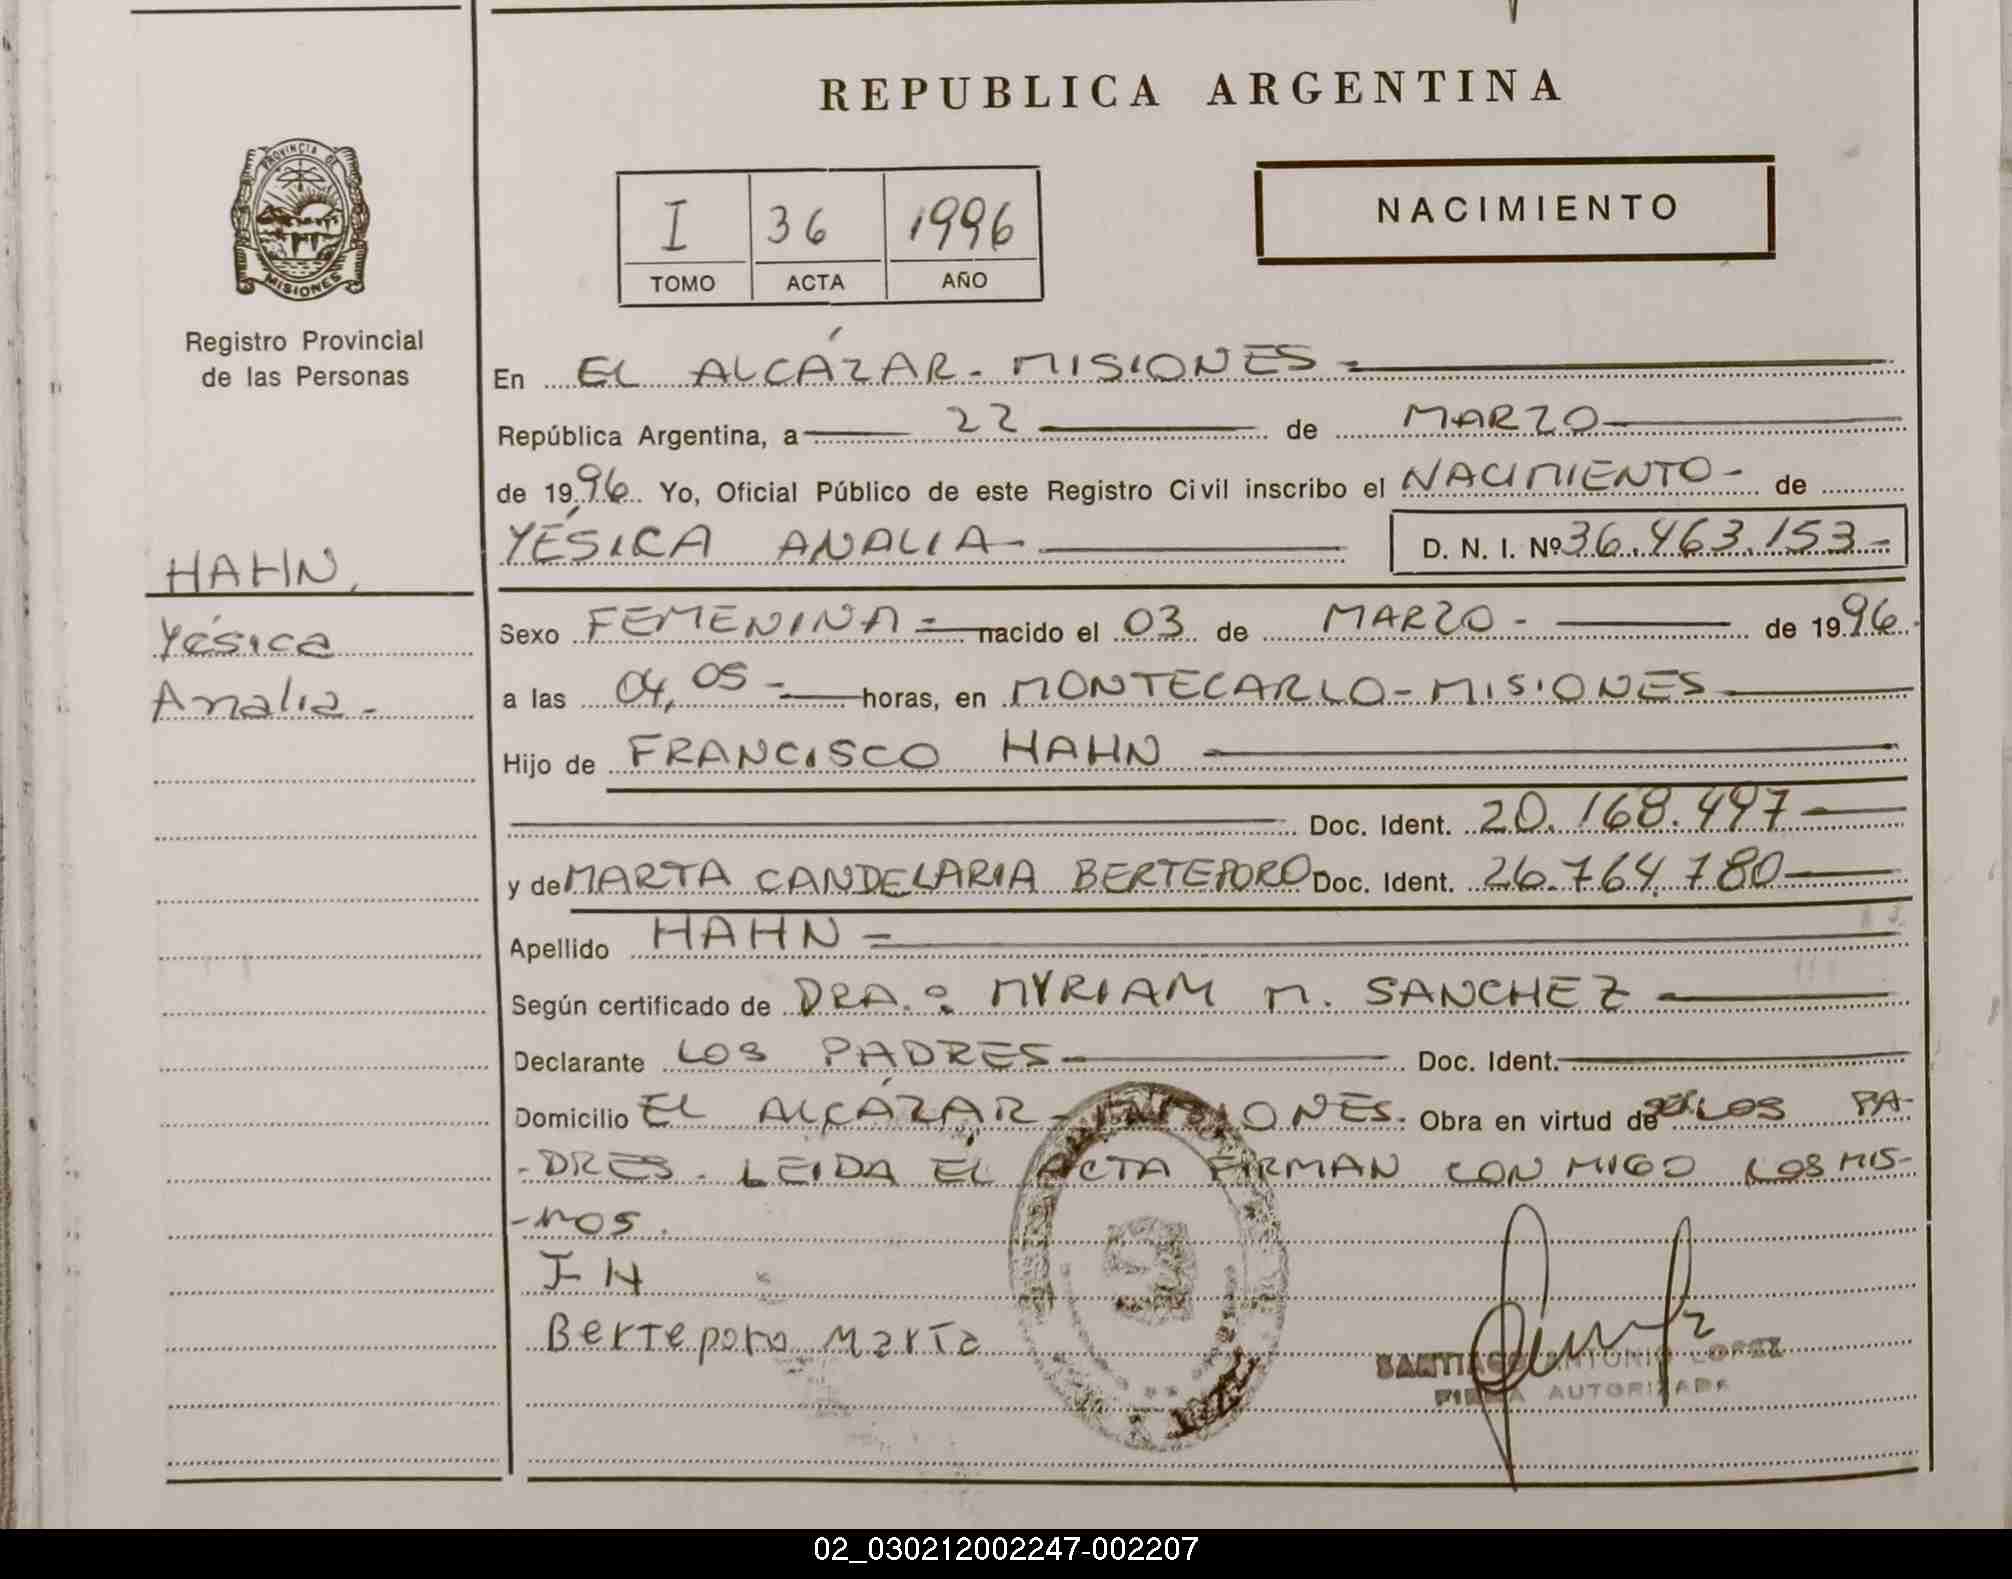 REPUBLICA ARGENTINA
PROVINCIA DE
MISIONES
Registro Provincial
de las Personas
I 36 1996
TOMO ACTA AÑO
NACIMIENTO
En EL ALCÁZAR - MISIONES
República Argentina, a 22 de MARZO
de 1996 Yo, Oficial Público de este Registro Civil inscribo el NACIMIENTO - de
YÉSICA ANALIA - D. N. I. Nº 36.463.153 -
HAHN,
Yésica
Analia -
Sexo FEMENINA = nacido el 03 de MARZO - de 1996
a las 04,05 - horas, en MONTECARLO - MISIONES
Hijo de FRANCISCO HAHN
Doc. Ident. 20.168.497
y de MARTA CANDELARIA BERTEPORO Doc. Ident. 26.764.780
Apellido HAHN -
Según certificado de DRA.: MYRIAM M. SANCHEZ
Declarante LOS PADRES - Doc. Ident.
Domicilio EL ALCÁZAR - MISIONES. Obra en virtud de LOS PA-
-DRES. LEIDA EL ACTA FIRMAN CON MIGO LOS MIS-
-MOS.
F H
Berteporo Marta
SANTIAGO ANTONIO LOPEZ
FIRMA AUTORIZADA
02_030212002247-002207